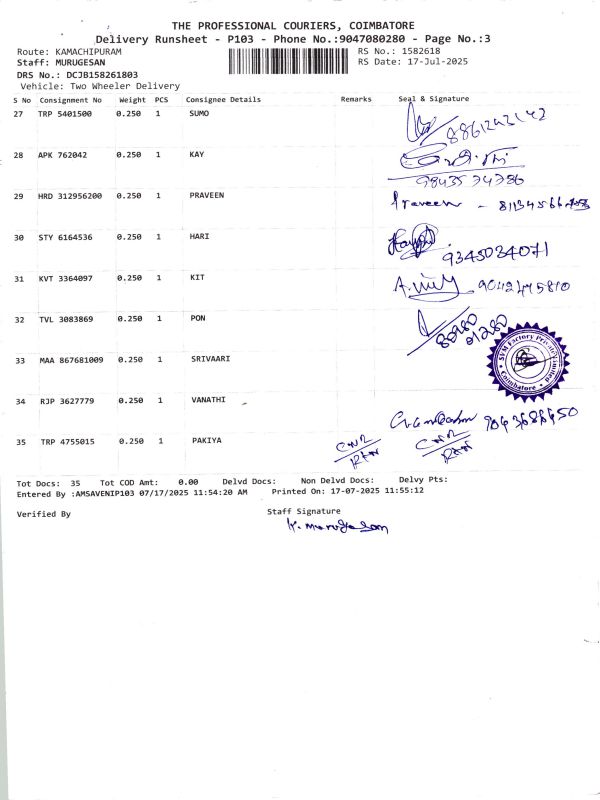 THE PROFESSIONAL COURIERS, COIMBATORE
Delivery Runsheet - P103 - Phone No.:9047080280 - Page No.:3
Route: KAMACHIPURAM RS No.: 1582618
Staff: MURUGESAN RS Date: 17-Jul-2025
DRS No.: DCJB158261803
Vehicle: Two Wheeler Delivery
S No Consignment No Weight PCS Consignee Details Remarks Seal & Signature
27 TRP 5401500 0.250 1 SUMO
28 APK 762042 0.250 1 KAY
29 HRD 312956200 0.250 1 PRAVEEN Praveen -
30 STY 6164536 0.250 1 HARI 9345034071
31 KVT 3364097 0.250 1 KIT
32 TVL 3083869 0.250 1 PON 80980 01280
33 MAA 867681009 0.250 1 SRIVAARI SVM Factory Private Limited * Coimbatore *
34 RJP 3627779 0.250 1 VANATHI
35 TRP 4755015 0.250 1 PAKIYA
Tot Docs: 35 Tot COD Amt: 0.00 Delvd Docs: Non Delvd Docs: Delvy Pts:
Entered By :AMSAVENIP103 07/17/2025 11:54:20 AM Printed On: 17-07-2025 11:55:12
Verified By Staff Signature
K. Murugesan